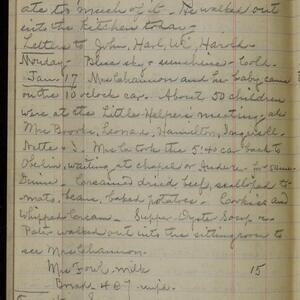 ate too much of it. He walked out
into the kitchen today.
Letters to John, Harl, W,
Monday - Blue sky & sunshine - Cold.
Jan. 17 Mrs Channon and her baby came
on the 10 o'clock car. About 50 children
were at the Little Helpers meeting, at
Mrs Brooks, Leonard, Hamilton,
& I. Mrs C. took the 5:40 car back to
Oberlin, waiting at chapel or
Dinner - Creamed dried beef, scalloped to-
matoes, beans, baked potatoes. Cookies and
whipped cream. Supper - Oyster Soup
walked out into the sitting room to
see Mrs Channon.
Mrs Fowl, milk 15
Bread